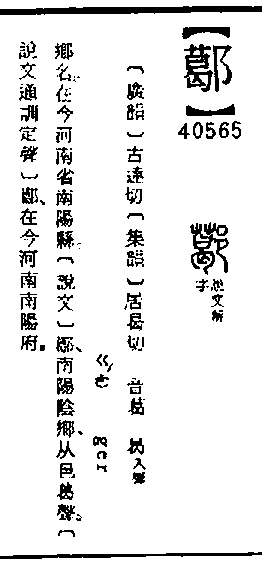 【鄸】
40565
說文解字
〔廣韻〕古達切〔集韻〕居曷切 音葛 曷入聲
ㄍㄜˊ ger
鄉名。在今河南省南陽縣。〔說文〕鄸、南陽陰鄉、从邑葛聲。〔
說文通訓定聲〕鄸、在今河南南陽府。